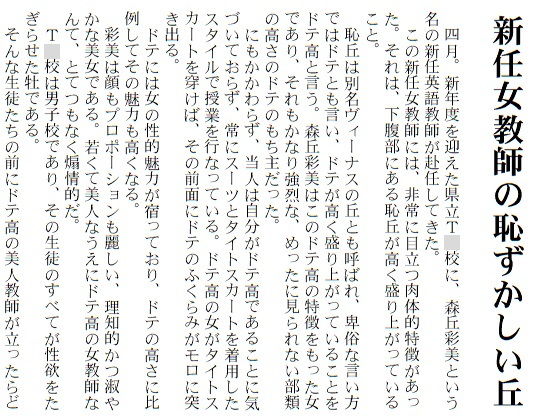 新任女教師の恥ずかしい丘
四月。新年度を迎えた県立T 校に、森丘彩美という
名の新任英語教師が赴任してきた。
この新任女教師には、非常に目立つ肉体的特徴があっ
た。それは、下腹部にある恥丘が高く盛り上がっている
こと。
恥丘は別名ヴィーナスの丘とも呼ばれ、卑俗な言い方
ではドテとも言い、ドテが高く盛り上がっていることを
ドテ高と言う。森丘彩美はこのドテ高の特徴をもった女
であり、それもかなり強烈な、めったに見られない部類
の高さのドテのもち主だった。
にもかかわらず、当人は自分がドテ高であることに気
づいておらず、常にスーツとタイトスカートを着用した
スタイルで授業を行なっている。ドテ高の女がタイトス
カートを穿けば、その前面にドテのふくらみがモロに突
き出る。
ドテには女の性的魅力が宿っており、ドテの高さに比
例してその魅力も高くなる。
彩美は顔もプロポーションも麗しい、理知的かつ淑や
かな美女である。若くて美人なうえにドテ高の女教師な
んて、とてつもなく煽情的だ。
T 校は男子校であり、その生徒のすべてが性欲をた
ぎらせた牡である。
そんな生徒たちの前にドテ高の美人教師が立ったらど